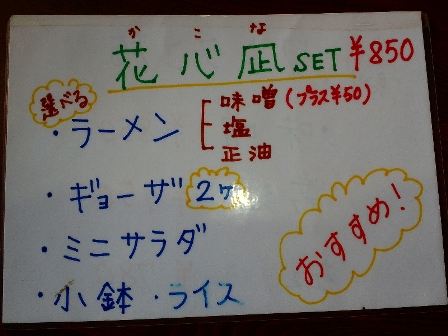 かこな
花心凪SET ¥850
選べる
・ラーメン
味噌(プラス¥50)
塩
正油
・ギョーザ2ヶ
・ミニサラダ
・小鉢・ライス
おすすめ!